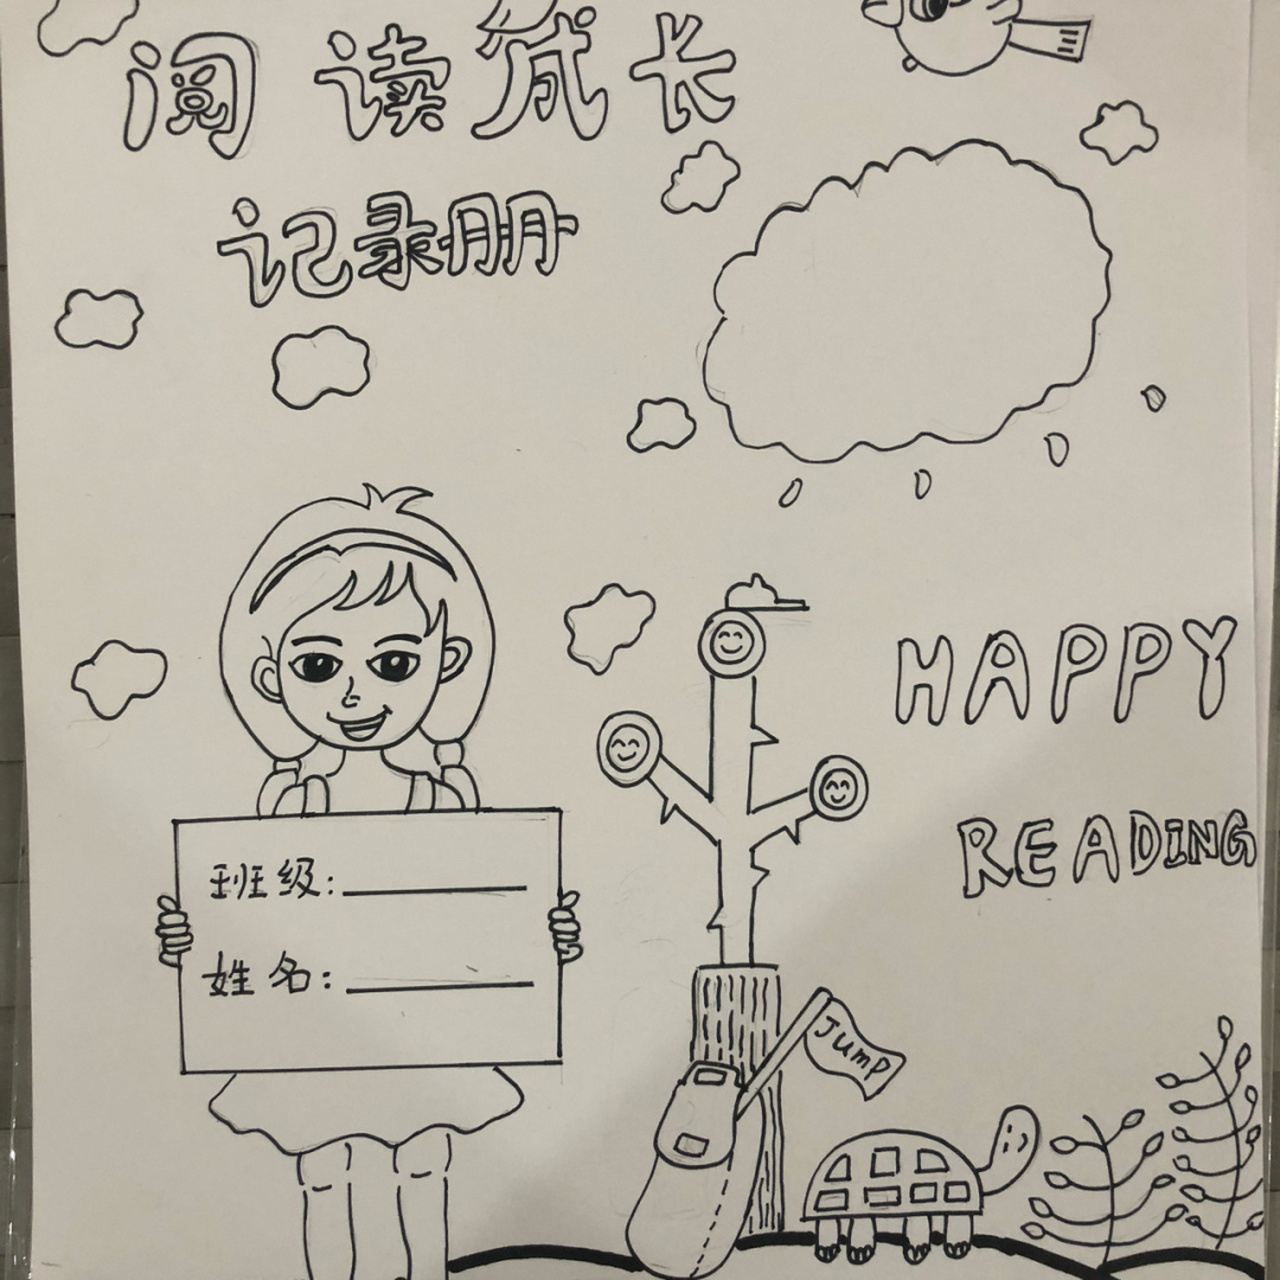 阅读成长
记录册
HAPPY
READING
班级:
姓名:
Jump